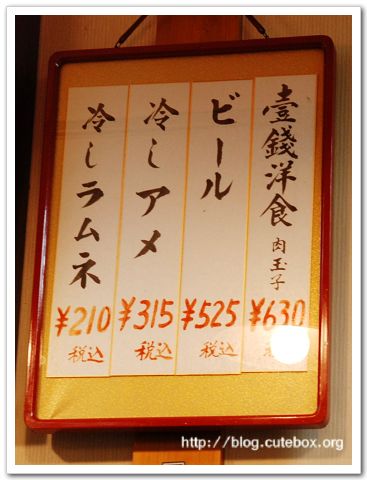 壹錢洋食 肉玉子
¥630
ビール
¥525
税込
冷しアメ
¥315
税込
冷しラムネ
¥210
税込
http://blog.cutebox.org